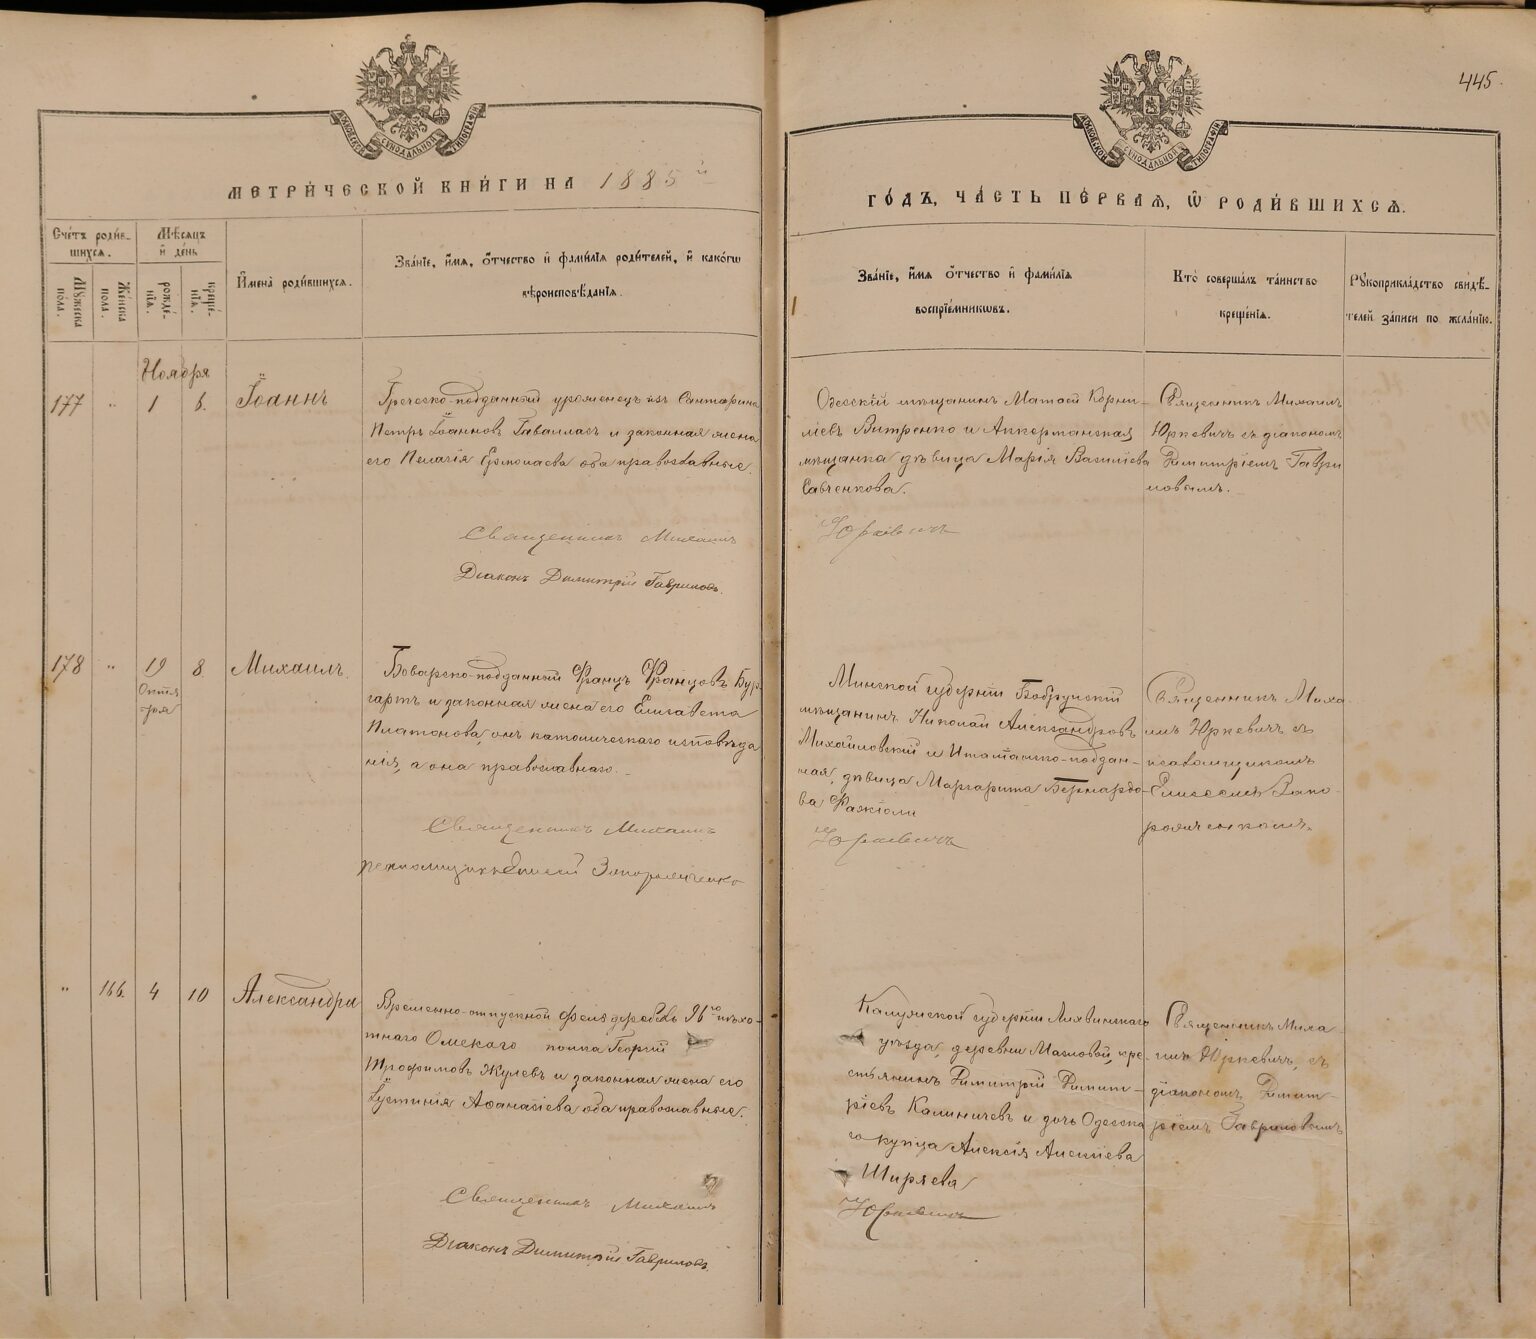 445.
МОСКОВСКОЙ СѴНОДАЛЬНОЙ ТИПОГРАФІИ
МОСКОВСКОЙ СѴНОДАЛЬНОЙ ТИПОГРАФІИ
МЕТРИ́ЧЕСКОЙ КНИ́ГИ НА 1885й
ГО́ДЪ, ЧА́СТЬ ПЕ́РВАѦ, Ѿ РОДИ́ВШИХСѦ.
Сче́тъ роди́в-
шихсѧ.
Мꙋ́жеска по́ла.
Же́нска пола.
Мѣ́сѧцъ
и҆ де́нь
рожде́-
нїѧ.
креще́-
нїѧ.
И҆мена̀ роди́вшихсѧ.
Зва́нїе, и҆́мѧ, ѻ҆́тчество и҆ фами́лїѧ роди́телей, и҆ како́гѡ
вѣроисповѣ́данїѧ.
Зва́нїе, и҆́мѧ ѻ҆́тчество и҆ фами́лїѧ
воспрїе́мникѡвъ.
Кто̀ соверша́лъ та́инство
креще́нїѧ.
Рꙋкоприкла́дство свидѣ́-
телей за́писи по жела́нїю.
Ноября
177 " 1 6. Іоаннъ
Греческо-подданный уроженецъ изъ Санторина
Петръ Іоанновъ Гаваласъ и законная жена
его Пелагія Ермолаева оба православные.
Священникъ Михаилъ
Діаконъ Димитрій Гавриловъ.
Одесскій мѣщанинъ Матѳей Корни-
ліевъ Витренко и Аккерманская
мѣщанка дѣвица Марія Василіева
Савченкова.
Юркевичъ
Священникъ Михаилъ
Юркевичъ съ діакономъ
Димитріемъ Гаври
ловымъ.
178 " 19 8. Михаилъ.
Октя
бря
Баварско-подданный Францъ Францовъ Бур-
гартъ и законная жена его Елисавета
Платонова, онъ католическаго исповѣда
нія, а она православнаго.
Священникъ Михаилъ
псаломщикъ Елисей Запорожченко
Минской губерніи Бобруйскій
мѣщанинъ Николай Александровъ
Михайловскій и Итальянско-поддан-
ная, дѣвица Маргарита Бернардо-
ва Фажіоли
Юркевичъ
Священникъ Миха
илъ Юркевичъ съ
псаломщикомъ
Елисеемъ Запо-
рожченкомъ.
" 166. 4 10 Александра
Временно-отпускной фельдфебель 96го пѣхо-
тнаго Омскаго полка Георгій
Трофимовъ Жулевъ и законная жена его
Іустинія Аѳанасіева оба православные.
Священникъ Михаилъ
Діаконъ Димитрій Гавриловъ.
Калужской губерніи Лихвинскаго
уѣзда, деревни Мазловой, кре-
стьянинъ Димитрій Димит-
ріевъ Калиничевъ и дочь Одесска
го купца Алексія Алексіева
Ширяева
Юркевичъ
Священникъ Миха-
илъ Юркевичъ, съ
діакономъ Димит-
ріемъ Гавриловымъ